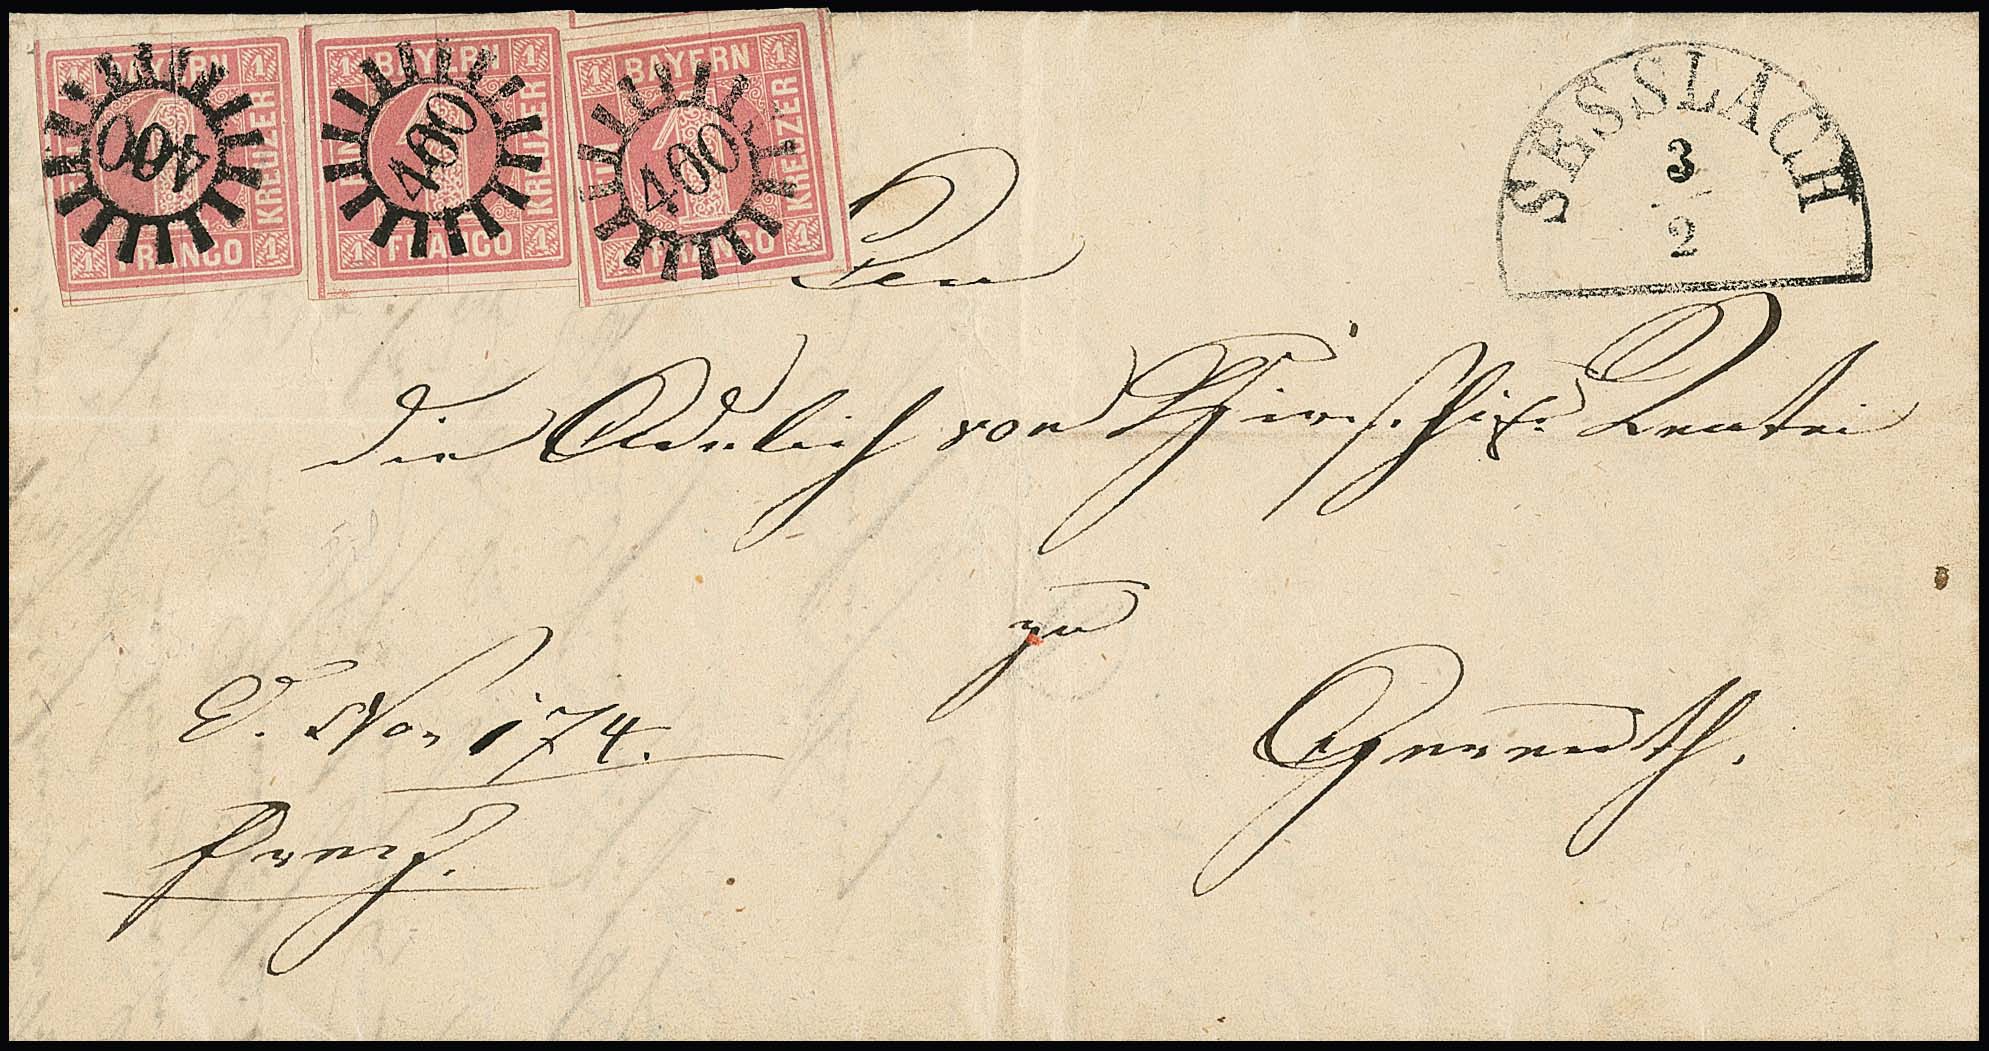 1 BAYERN 1
KREUZER
1 FRANCO 1
400
1 BAYERN 1
KREUZER
1 FRANCO 1
400
1 BAYERN 1
KREUZER
1 FRANCO 1
400
SESSLACH
3
2
An
die Adelich von Rentei
zu
E. No 174.
Gereuth.